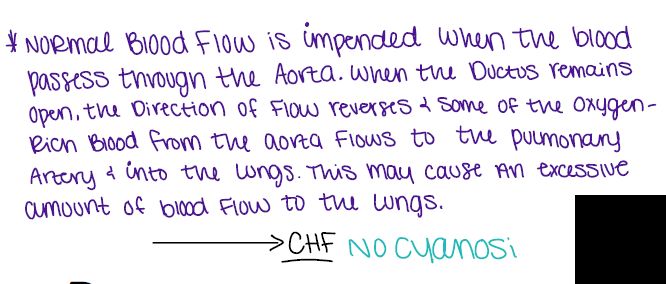 * Normal Blood Flow is impended when the blood
passess through the Aorta. When the Ductus remains
open, the Direction of Flow reverses & some of the oxygen-
Rich Blood from the aorta Flows to the pulmonary
Artery & into the lungs. This may cause An excessive
amount of blood Flow to the lungs.
→ CHF No cyanosi